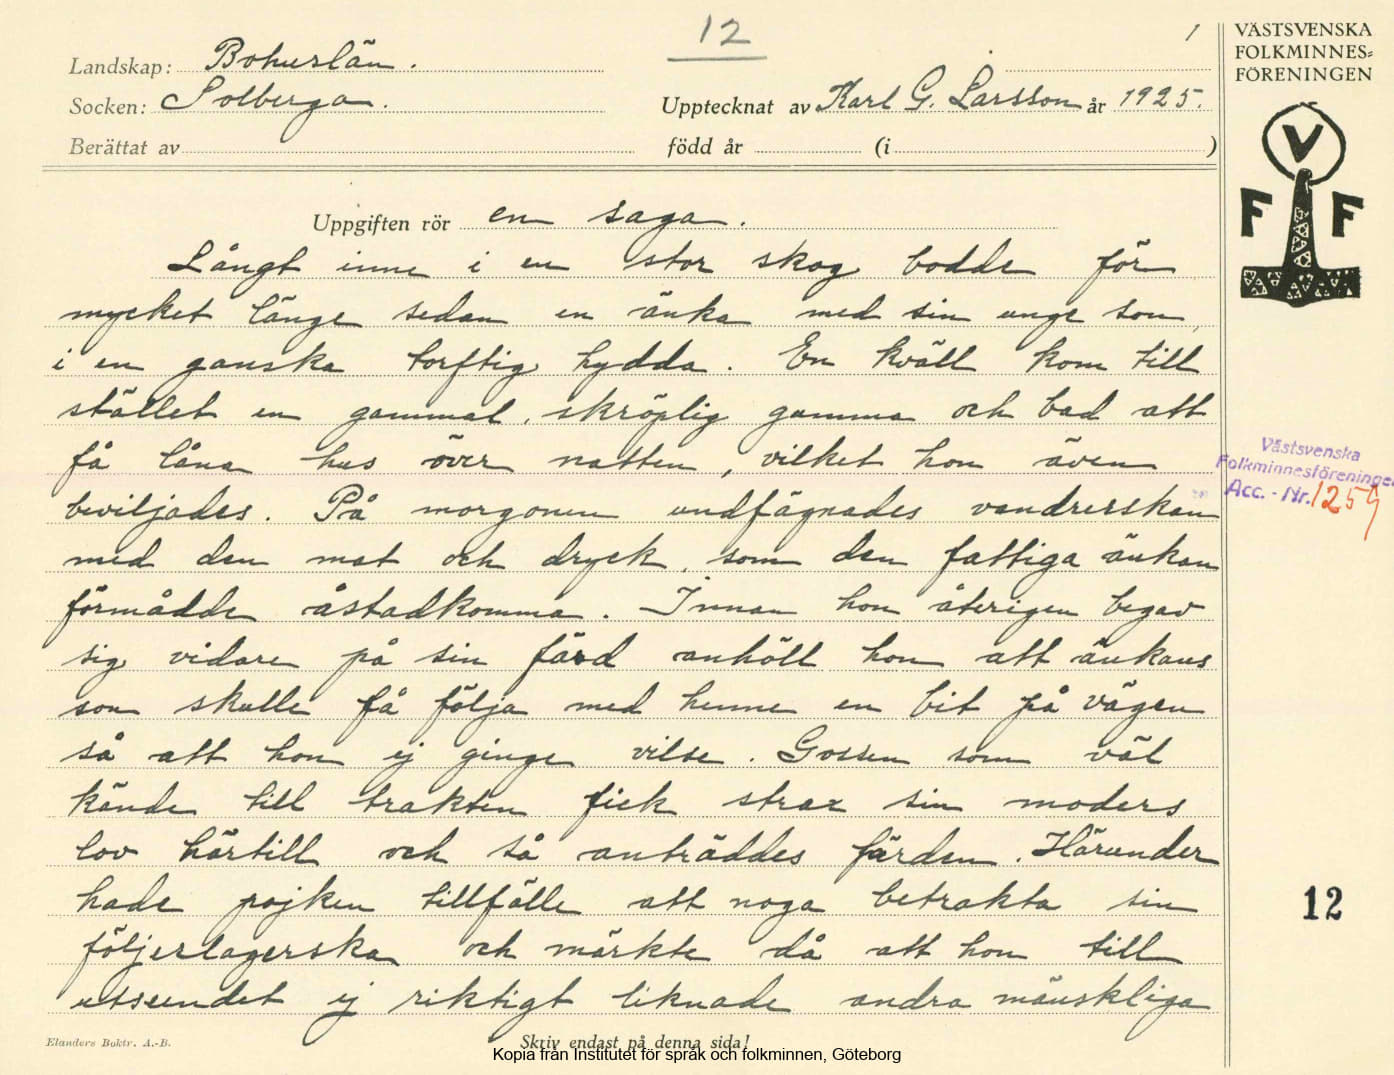 12
1
VÄSTSVENSKA
FOLKMINNES=
FÖRENINGEN
Landskap: Bohuslän.
Socken: Solberga.
Upptecknat av Karl G. Larsson år 1925.
Berättat av
född år (i )
V
F F
Uppgiften rör en saga.
Långt inne i en stor skog bodde för
mycket länge sedan en änka med sin unge son,
i en ganska torftig hydda. En kväll kom till
stället en gammal, skröplig gumma och bad att
få låna hus över natten, vilket hon även
beviljades. På morgonen undfägnades vandrerskan
med den mat och dryck, som den fattiga änkan
förmådde åstadkomma. Innan hon återigen begav
sig vidare på sin färd anhöll hon att änkans
son skulle få följa med henne en bit på vägen
så att hon ej ginge vilse. Gossen som väl
kände till trakten fick strax sin moders
lov härtill och så anträddes färden. Härunder
hade pojken tillfälle att noga betrakta sin
följeslagerska och märkte då att hon till
utseendet ej riktigt liknade andra mänskliga
Västsvenska
Folkminnesföreningen
Acc. - Nr. 1259
12
Elanders Boktr. A.-B.
Skriv endast på denna sida!
Kopia från Institutet för språk och folkminnen, Göteborg